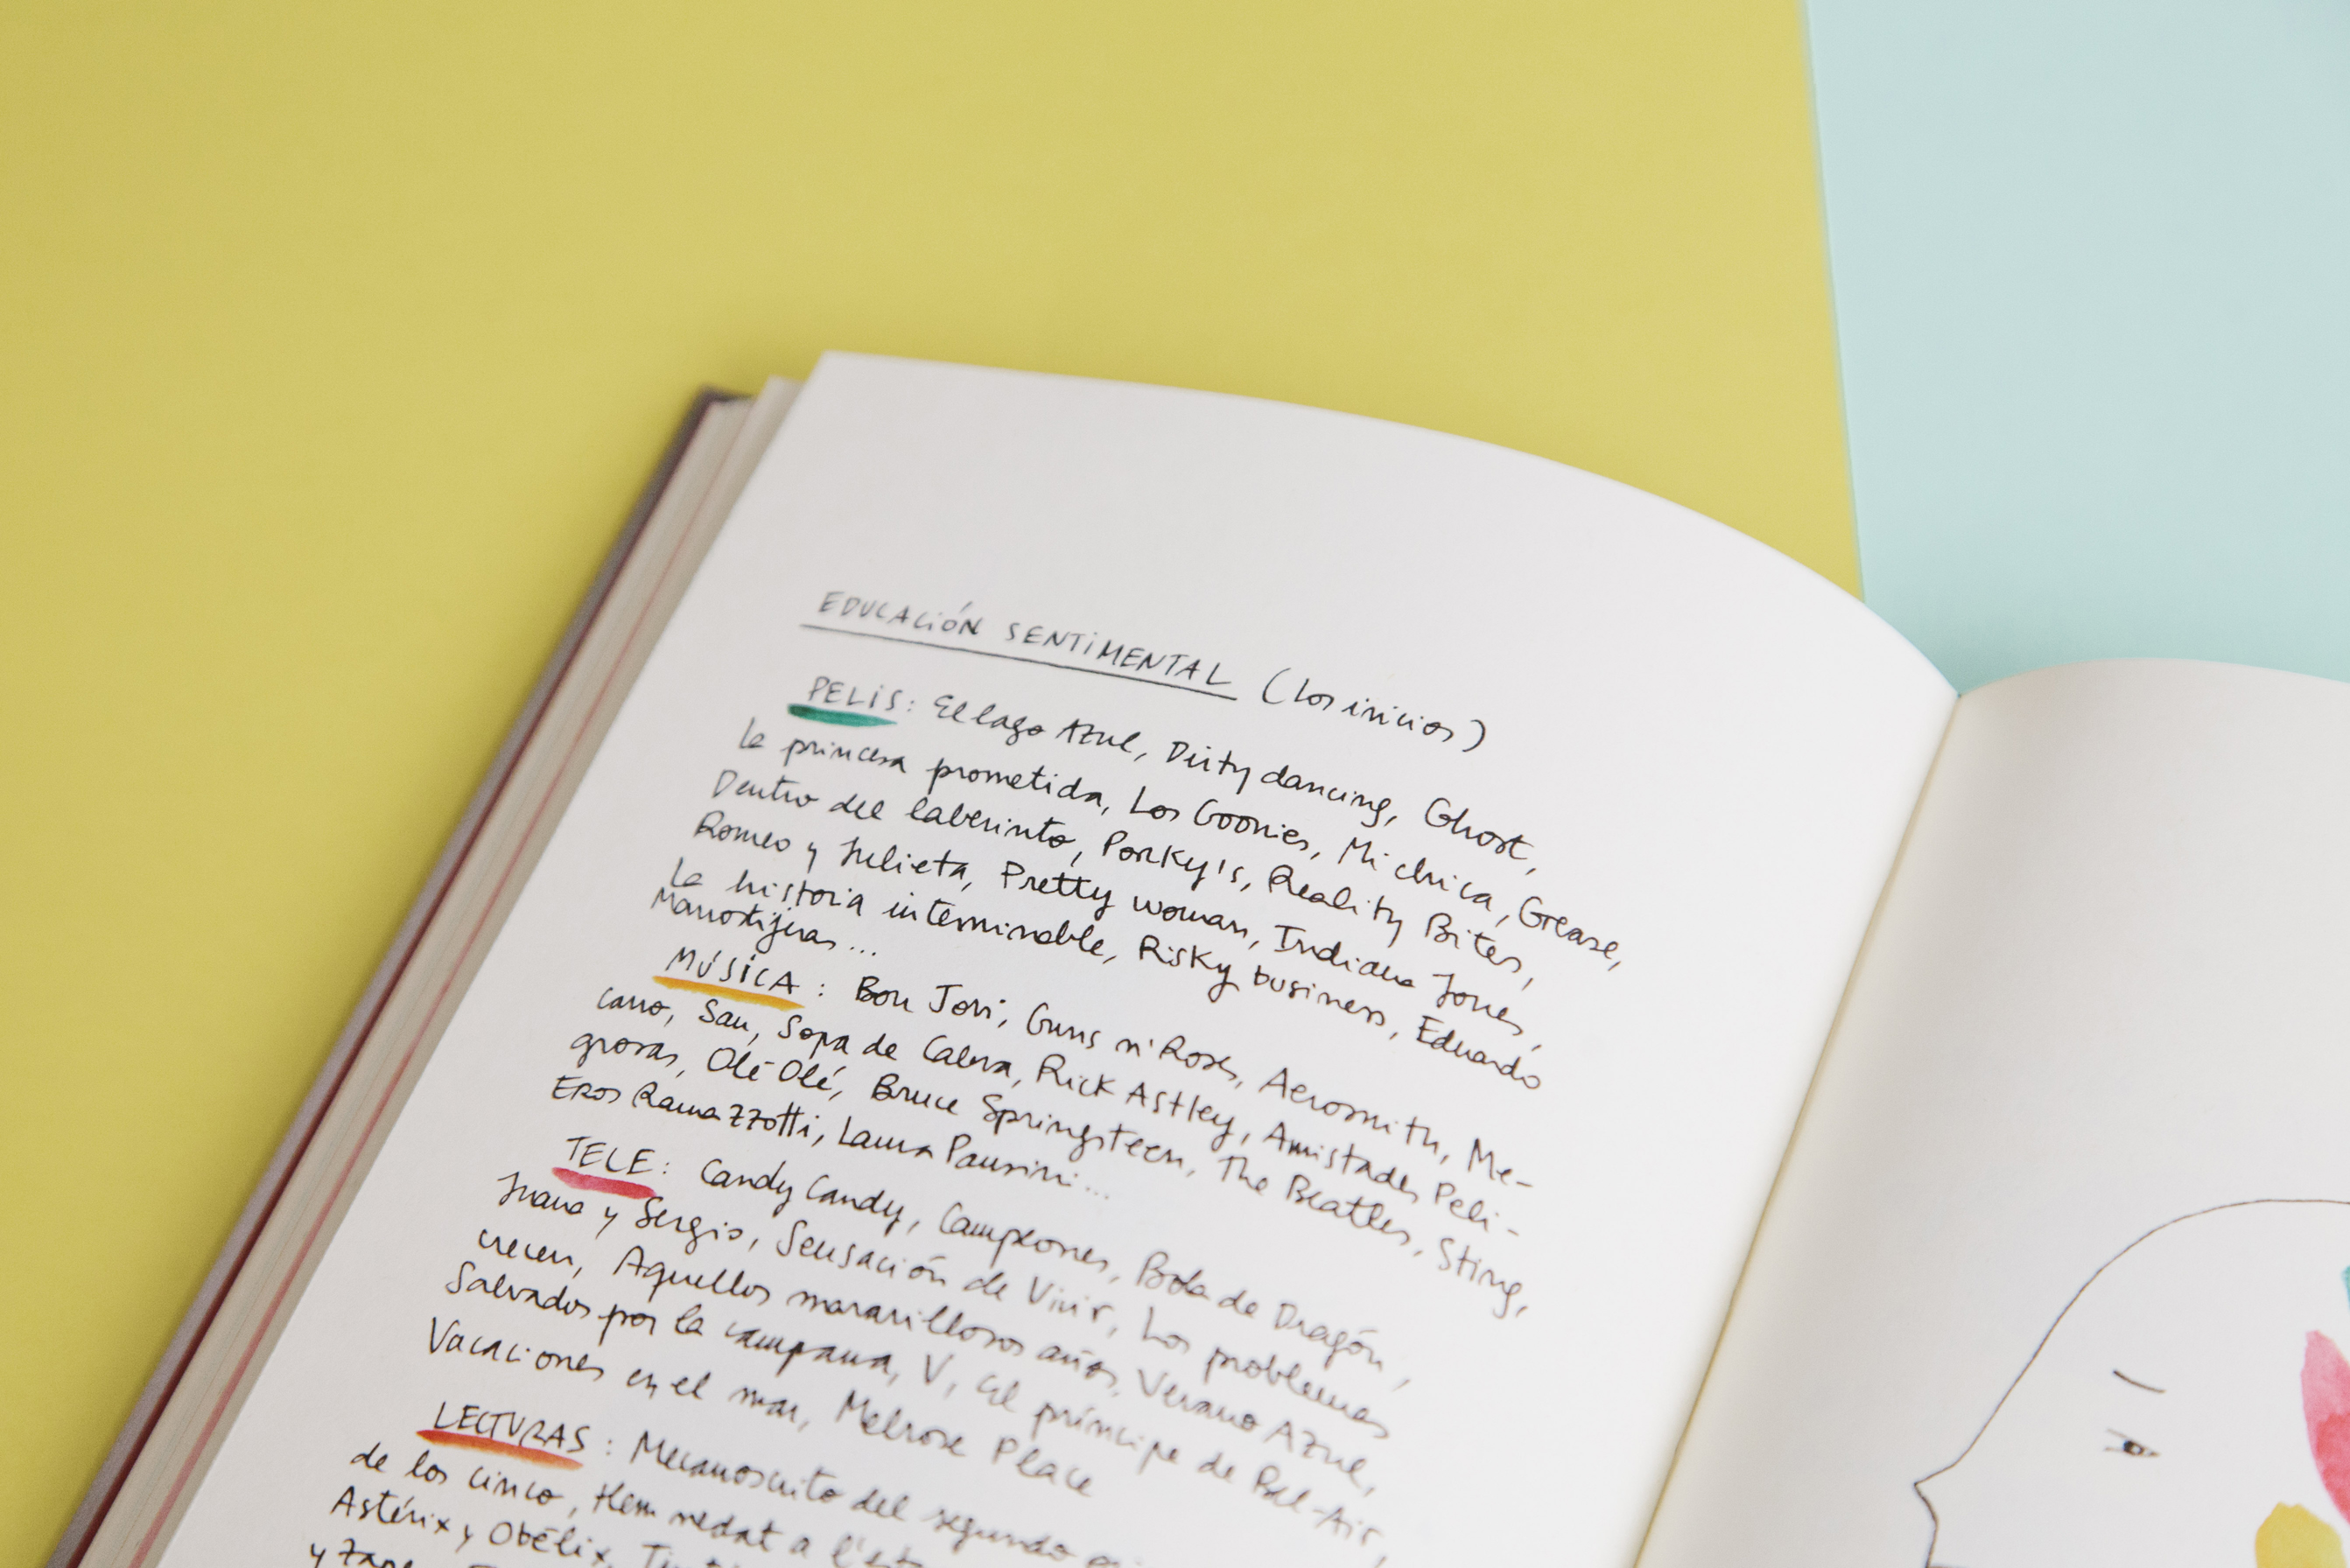 EDUCACIÓN SENTIMENTAL (Los inicios)
PELIS: El lago Azul, Dirty dancing, Ghost,
la princesa prometida, Los Goonies, Mi chica, Grease,
Dentro del laberinto, Porky's, Reality Bites,
Romeo y Julieta, Pretty woman, Indiana Jones,
La historia interminable, Risky business, Eduardo
Manostijeras...
MÚSICA: Bon Jovi, Guns n' Roses, Aerosmith, Me-
cano, Sau, Sopa de Cabra, Rick Astley, Amistades Peli-
grosas, Olé Olé, Bruce Springsteen, The Beatles, Sting,
Eros Ramazzotti, Laura Pausini...
TELE: Candy Candy, Campeones, Bola de Dragón,
Juana y Sergio, Sensación de Vivir, Los problemas
crecen, Aquellos maravillosos años, Verano Azul,
Salvados por la campana, V, El príncipe de Bel-Air,
Vacaciones en el mar, Melrose Place
LECTURAS: Mecanoscrito del segundo
de los cinco, Hem nedat a l'est
Astérix y Obélix,
y Zape